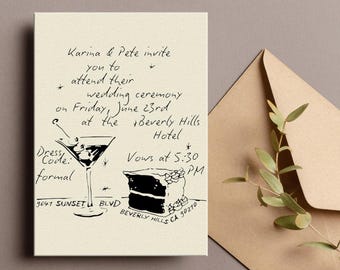 Karina & Pete invite
you to
attend their
wedding ceremony
on Friday, June 23rd
at the Beverly Hills
Hotel
Dress
Code:
formal
Vows at 5:30
PM
9641 SUNSET BLVD
BEVERLY HILLS CA 90210